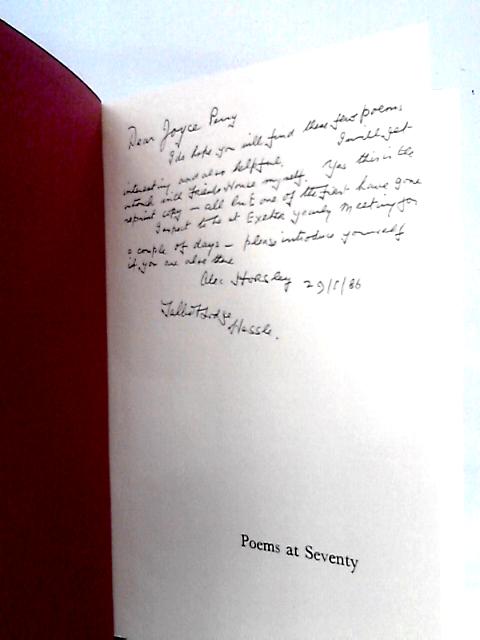 Dear Joyce Perry
I do hope you will find these few poems
interesting and also helpful. I will get
in touch with Friends House myself. Yes this is the
reprint copy — all but one of the first have gone
I expect to be at Exeter yearly Meeting for
a couple of days — please introduce yourself
if you are also there
Alec Horsley 29/5/86
Talbot Lodge
Hessle.
Poems at Seventy